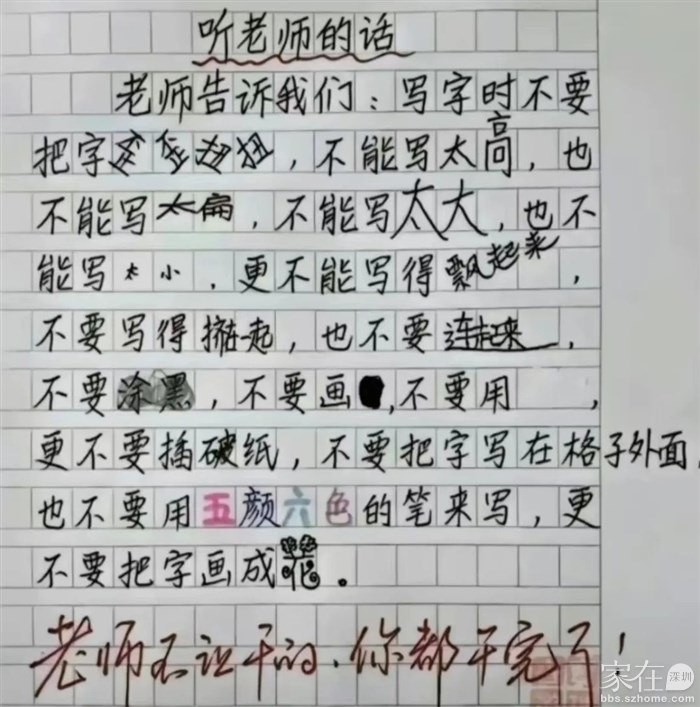 听老师的话
老师告诉我们：写字时不要
把字歪歪扭扭，不能写太高，也
不能写太扁，不能写太大，也不
能写太小，更不能写得飘起来，
不要写得挤一起，也不要连起来，
不要涂黑，不要画，不要用，
更不要插破纸，不要把字写在格子外面，
也不要用五颜六色的笔来写，更
不要把字画成花。
老师不让干的，你都干完了！
家在深圳
bbs.szhome.com